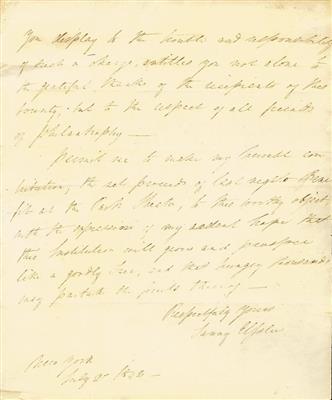 You display to the trouble and responsibility
of such a charge, entitles you not alone to
the grateful thanks of the recipients of this
bounty, but to the respect of all friends
of philanthrophy —
Permit me to make my humble con
tribution, the net proceeds of last nights Bene
fit at the Park Theatre, to this worthy object,
with the expression of my ardent hope that
this Institution will grow and prosper
like a goodly tree, and that hungry thousands
may partake the fruits thereof —
Respectfully Yours
Fanny Elssler
New York
July